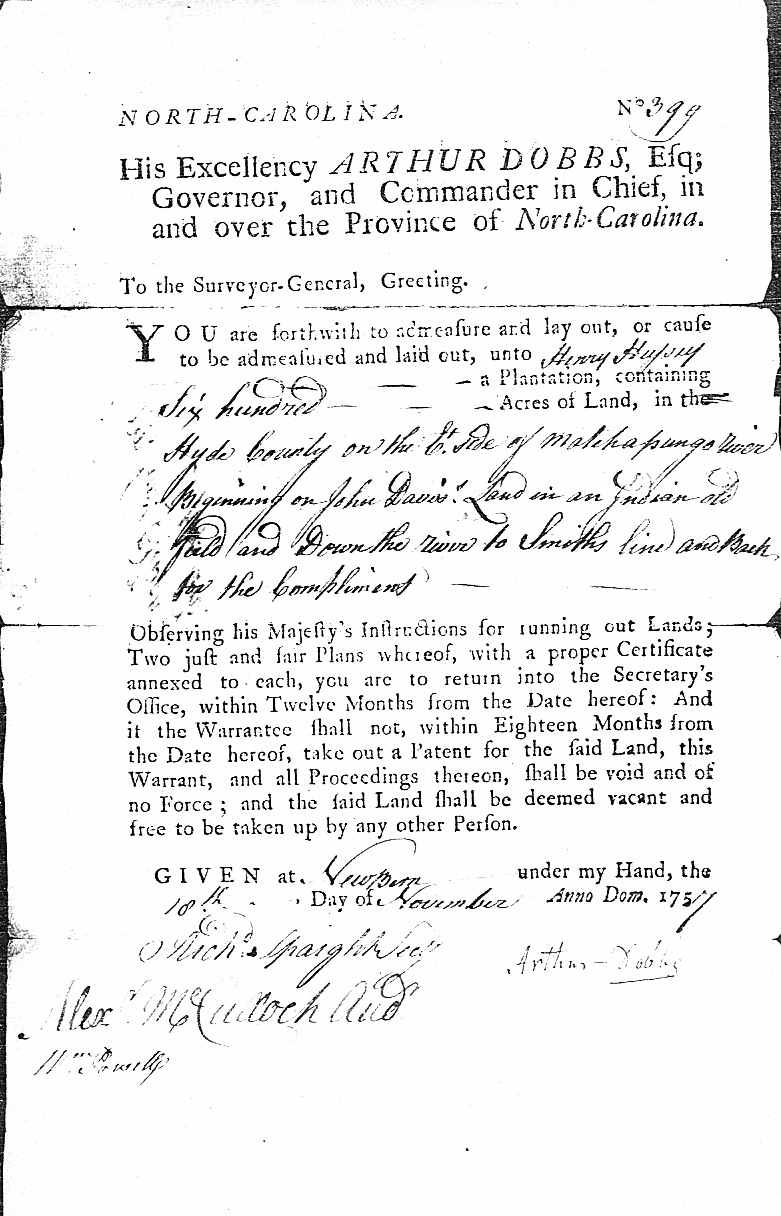 NORTH-CAROLINA. No 399
His Excellency ARTHUR DOBBS, Eſq;
Governor, and Commander in Chief, in
and over the Province of North-Carolina.
To the Surveyor-General, Greeting.
YOU are forthwith to admeaſure and lay out, or cauſe
to be admeaſured and laid out, unto Henry Hussey
— — a Plantation, containing
Six hundred — — — Acres of Land, in the
Hyde County on the Et. side of Matchapungo River
Biginning on John Davis's Land in an Indian old
Field and Down the River to Smiths line and Back
for the Compliment — —
Obſerving his Majeſty's Inſtructions for running out Lands;
Two juſt and fair Plans whereof, with a proper Certificate
annexed to each, you are to return into the Secretary's
Office, within Twelve Months from the Date hereof: And
if the Warrantee ſhall not, within Eighteen Months from
the Date hereof, take out a Patent for the ſaid Land, this
Warrant, and all Proceedings thereon, ſhall be void and of
no Force; and the ſaid Land ſhall be deemed vacant and
free to be taken up by any other Perſon.
GIVEN at Newbern under my Hand, the
18th Day of November Anno Dom. 1757
Richd. Spaight Secy Arthur Dobbs
Alexr. McCulloch Audr
Wm Powell